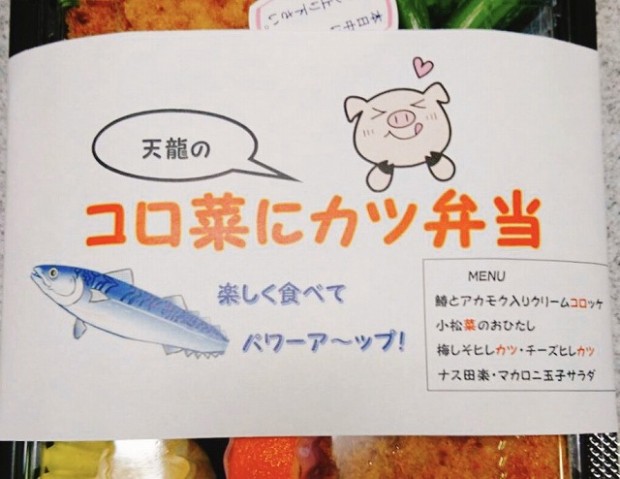 本日中に
上り下さい。
天龍の
コロ菜にカツ弁当
楽しく食べて
パワーア〜ップ!
MENU
鰆とアカモク入りクリームコロッケ
小松菜のおひたし
梅しそヒレカツ・チーズヒレカツ
ナス田楽・マカロニ玉子サラダ